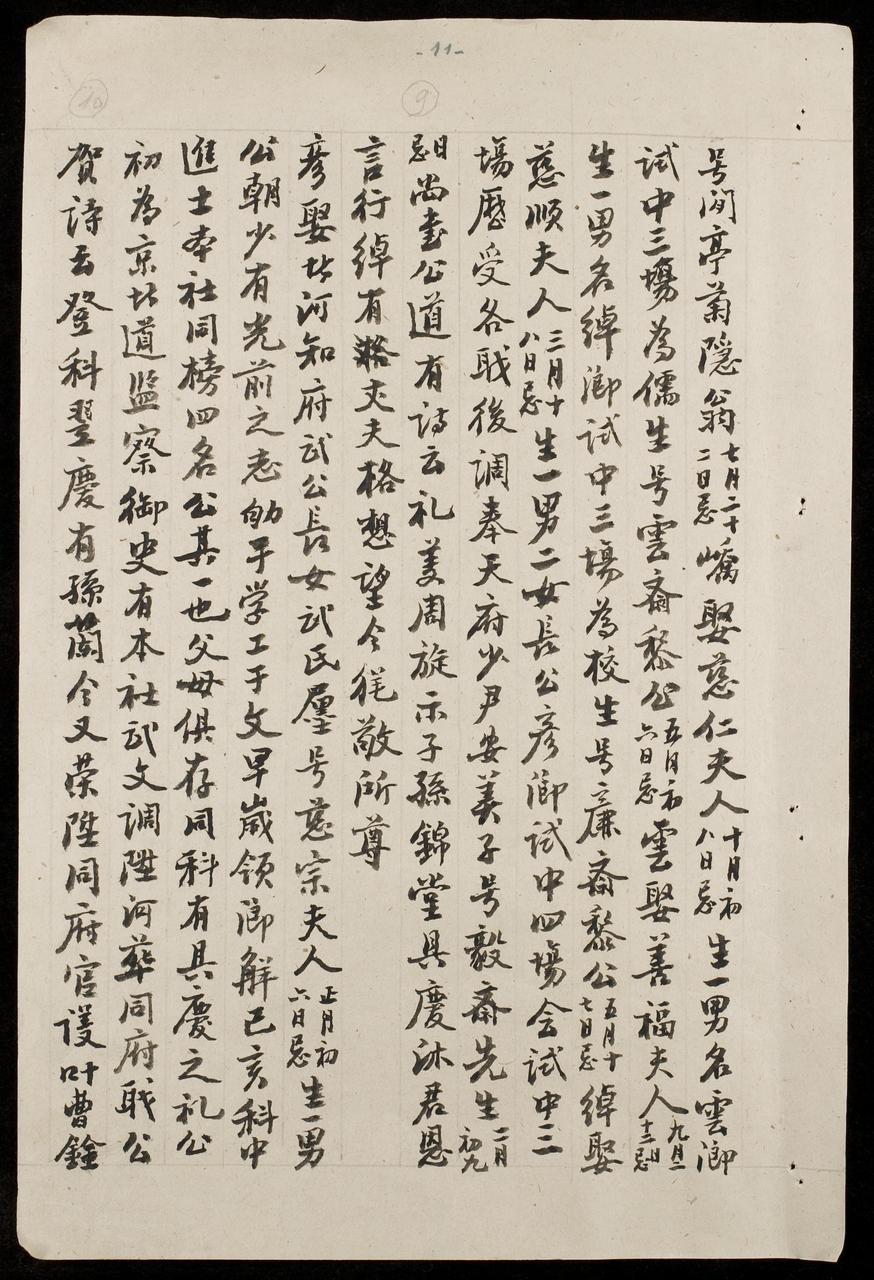 -11-
10
9
号闲亭菊隐翁七月二十二日忌嶠娶慈仁夫人十月初八日忌生一男名雲鄉
試中三塲為儒生号雲斋黎公五月初六日忌雲娶善福夫人九月二十三日忌
生一男名綽鄉試中三塲為校生号廉斋黎公五月十七日忌綽娶
慈順夫人三月十八日忌生一男二女長公彦鄉試中四塲会試中三
塲歷受各职後調奉天府少尹安美子号毅斋先生二月初九
日忌尚書公道有詩云礼美周旋示子孫錦堂具慶沐君恩
言行綽有丈夫格想望令従敬所尊
彦娶北河知府武公長女武氏号慈宗夫人正月初六日忌生一男
公朝少有光前之志幼平学工于文早歲领鄉解己亥科中
進士本社同榜四名公其一也父母俱存同科有具慶之礼公
初為京北道监察御史有本社武文調陞河華同府职公
賀詩云登科翌慶有孫蘭今又荣陞同府官謢叶曹銓